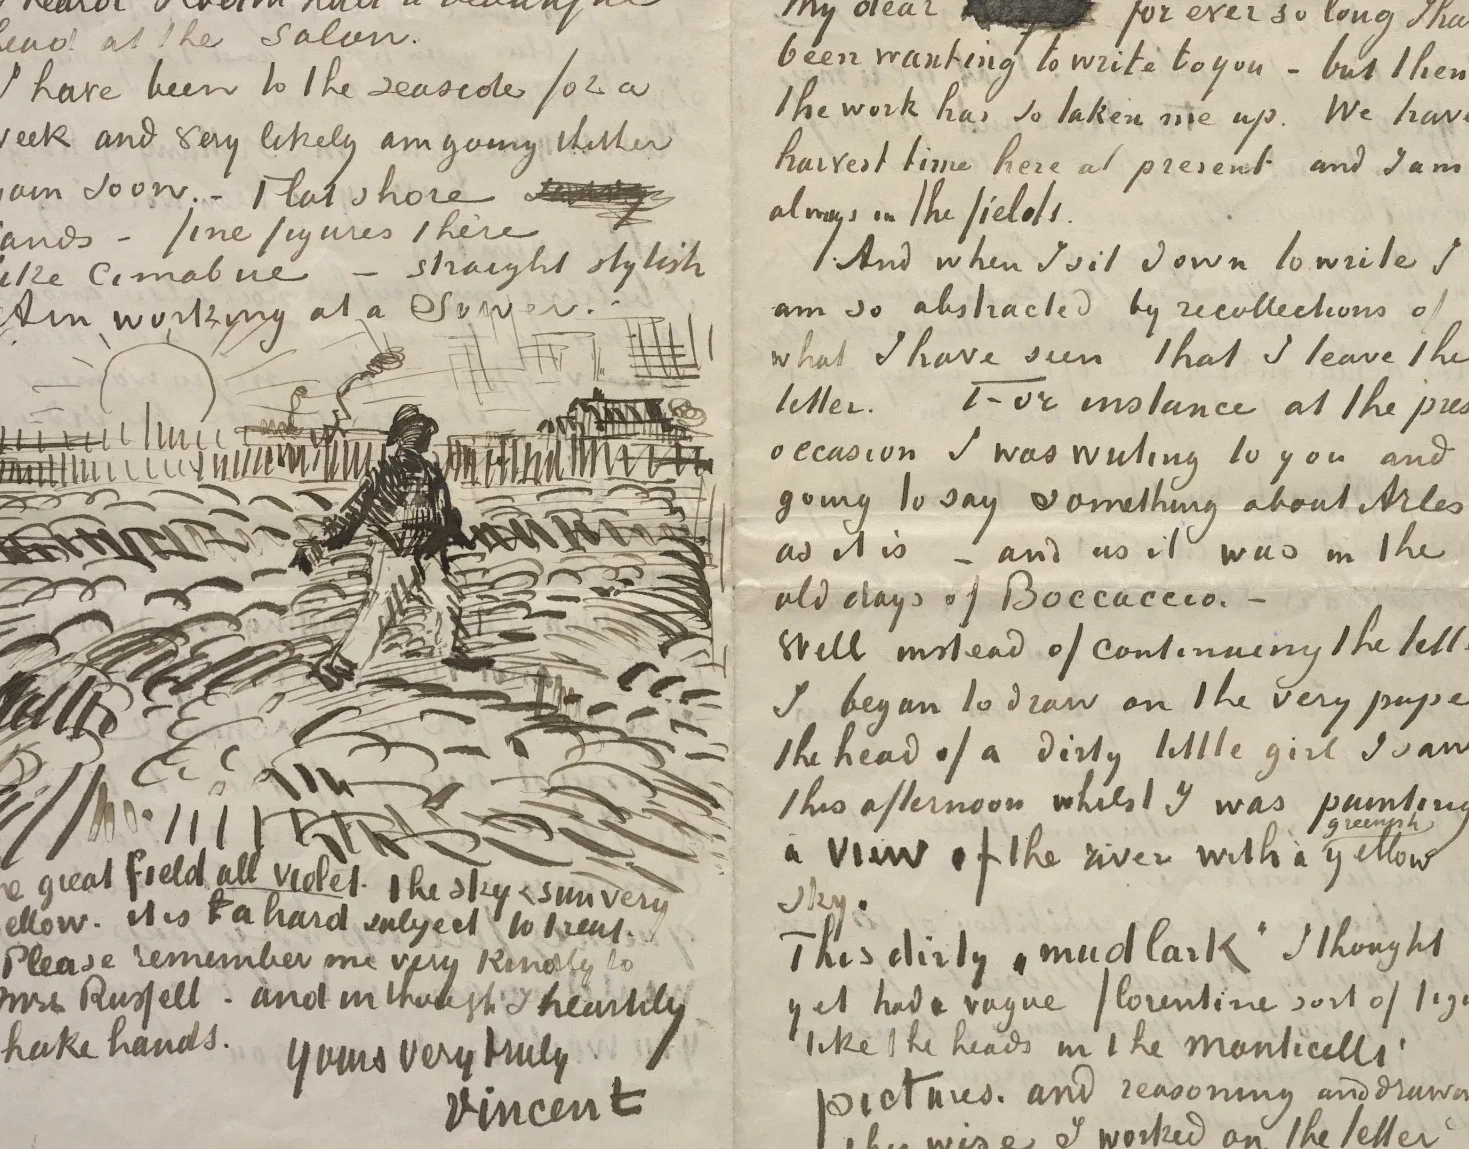 heard Rodin had a beautiful
head at the salon.
I have been to the seaside for a
week and very likely am going thither
again soon. - Flat shore
sands - fine figures there
like Cimabue - straight stylish
Am working at a Sower. -
the great field all violet. the sky & sun very
yellow. it is a hard subject to treat.
Please remember me very kindly to
mrs. Russell - and in thought I heartily
shake hands.
yours very truly
Vincent
My dear for ever so long I ha
been wanting to write to you - but then
the work has so taken me up. We have
harvest time here at present and I am
always in the fields.
And when I sit down to write I
am so abstracted by recollections of
what I have seen that I leave the
letter. For instance at the pres
occasion I was writing to you and
going to say something about Arles
as it is - and as it was in the
old days of Boccaccio. -
Well instead of continuing the lett
I began to draw on the very pape
the head of a dirty little girl I saw
this afternoon whilst I was painting
a view of the river with a greenish yellow
sky.
This dirty „mudlark“ I thought
yet had a vague florentine sort of figu
like the heads in the monticelli
pictures. and reasoning and drawing
this wise I worked on the letter